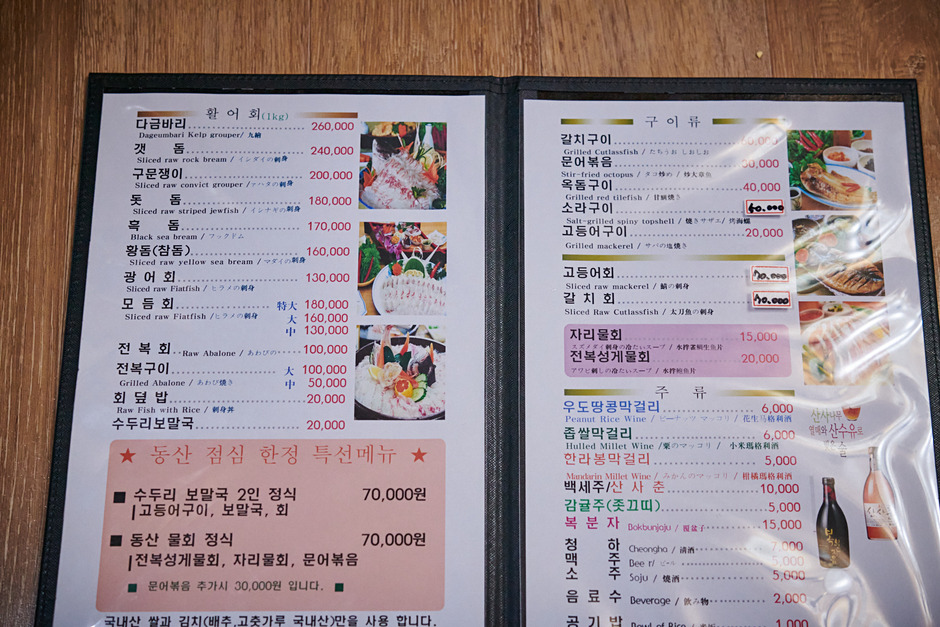 활어회(1kg)
다금바리 260,000
Dageumbari Kelp grouper/ 九繪
갯돔 240,000
Sliced raw rock bream / イシダイの刺身
구문쟁이 200,000
Sliced raw convict grouper / アハタの刺身
돗돔 180,000
Sliced raw striped jewfish / イシナギの刺身
흑돔 170,000
Black sea bream / フックドム
황돔(참돔) 160,000
Sliced raw yellow sea bream / マダイの刺身
광어회 130,000
Sliced raw Fiatfish / ヒラメの刺身
모듬회 特大 180,000
Sliced raw Fiatfish /ヒラメの刺身 大 160,000
中 130,000
전복회 Raw Abalone / あわびの 100,000
전복구이 大 100,000
Grilled Abalone / あわび焼き 中 50,000
회덮밥 20,000
Raw Fish with Rice / 刺身丼
수두리보말국 20,000
★ 동산 점심 한정 특선메뉴 ★
■ 수두리 보말국 2인 정식 70,000원
고등어구이, 보말국, 회
■ 동산 물회 정식 70,000원
전복성게물회, 자리물회, 문어볶음
■ 문어볶음 추가시 30,000원 입니다. ■
국내산 쌀과 김치(배추,고춧가루 국내산)만을 사용 합니다.
구이류
갈치구이
Grilled Cutlassfish / たちうお しおしお
문어볶음
Stir-fried octopus / タコ炒め / 炒大章魚
옥돔구이 40,000
Grilled red tilefish / 甘鯛焼き
소라구이 40,000
Salt-grilled spiny topshell / 焼きサザエ/ 烤海螺
고등어구이 20,000
Grilled mackerel / サバの塩焼き
고등어회 70,000
Sliced raw mackerel / 鯖の刺身
갈치회 70,000
Sliced Raw Cutlassfish / 太刀魚の刺身
자리물회 15,000
スズメダイ刺身の冷たいスープ / 水拌雀鯛生魚片
전복성게물회 20,000
アワビ刺しの冷たいスープ / 水拌鲍魚片
주류
우도땅콩막걸리 6,000
Peanut Rice Wine / ピーナッツ マッコリ / 花生马格利酒
좁쌀막걸리 6,000
Hulled Millet Wine / 粟のマッコリ / 小米瑪格利酒
한라봉막걸리 5,000
Mandarin Millet Wine / みかんのマッコリ / 柑橘瑪格利酒
백세주/산사춘 10,000
감귤주(좃끄띠) 5,000
복분자 Bokbunjoju / 覆盆子 15,000
청하 Cheongha / 清酒 7,000
맥주 Beer / ビール 5,000
소주 Soju / 焼酒 5,000
음료수 Beverage / 飲み物 2,000
공기밥 Bowl of Rice 1,000
산사나무
열매와 산수유로